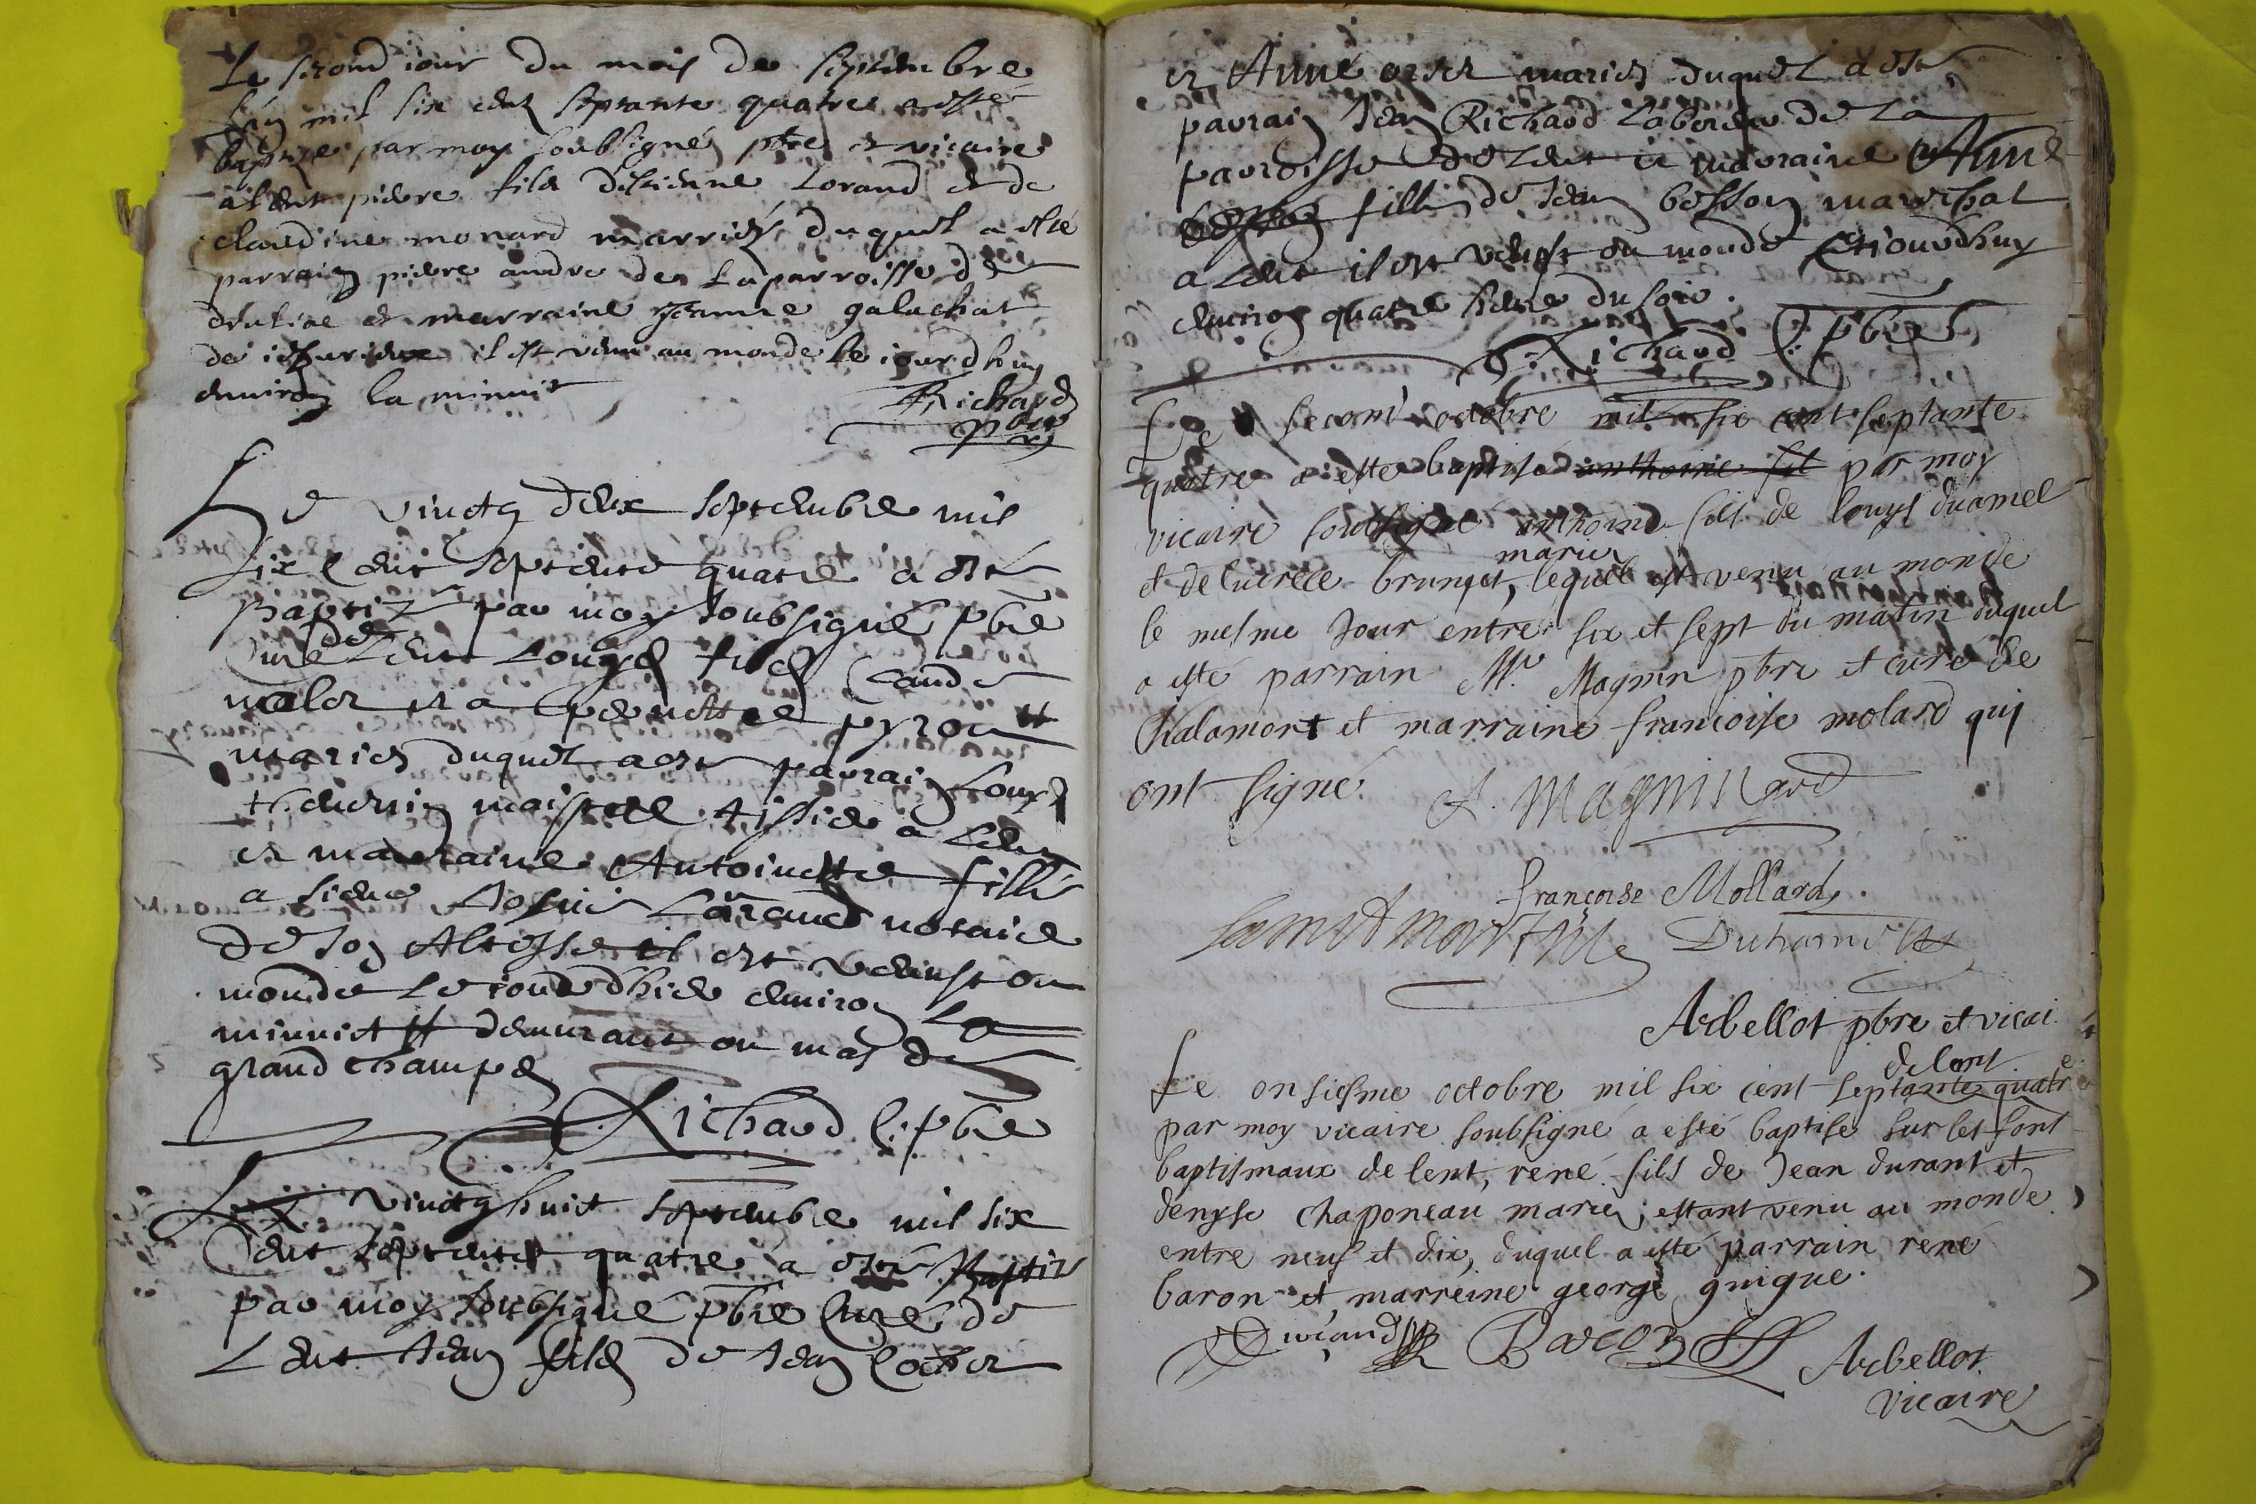 Le second iour du mois de septembre
mil six cent septante quatre a esté
baptize par moy soubsigné ptre et vicaire
a lent pierre fils destienne Lorand et de
claudine monard marriés duquel a esté
parrain pierre andre de la parroisse de
druline et marraine jeanne galachat
de il est venu au monde le iourdhuy
environ la minuit
Richard
pbre
Le vinctg deux septembre mil
six Cent septente quatre a esté
Baptizé par moy soubsigné pbre
Curé de Lent Louys fils Claude
et a pernette pyrou
mariés duquel a esté parrain Louys
thevenin maistre tissier a Lent
et marraine Antoinette fille
a sieur notaire
de son Altesse il est au
monde Le iourdhier environ La
minuict demurant ou mas de
grand champs
Richard C. pbre
Le vinctg huit septembre mil six
Cent septente quatre a esté Baptizé
par moy soubsigné pbre Curé de
Lent Jean fils de Jean
et Anne mariés duquel a esté
parrain Jean Richard Laboreur de La
parroisse de Lent et marraine Anne
besson fille de Jean besson mareschal
a Lent il est au monde cejourdhuy
environ quatre heure du soir.
Richard C. pbre
Le second octobre mil six cent septante
quatre a este baptisé anthoine fil par moy
vicaire soubsigné anthoine fils de louys duamel
et de lucrece brunet, mariez lequel est venu au monde
le mesme Jour entre six et sept du matin duquel
a esté parrain Mr. Magnin pbre et curé de
Chalamont et marraine francoise molard qui
ont signé. A. Magnin
françoise Mollard.
Duhamel
Arbellot pbre et vicai.
de lent
Le onsiesme octobre mil six cent septante quatre
par moy vicaire soubsigné a esté baptise sur les font
baptismaux de lent, rené fils de Jean durant et
denyse chaponeau mariez, estant venu au monde
entre neuf et dix, duquel a esté parrain rené
baron et marreine george guigue.
Durand Baron Arbellot
vicaire